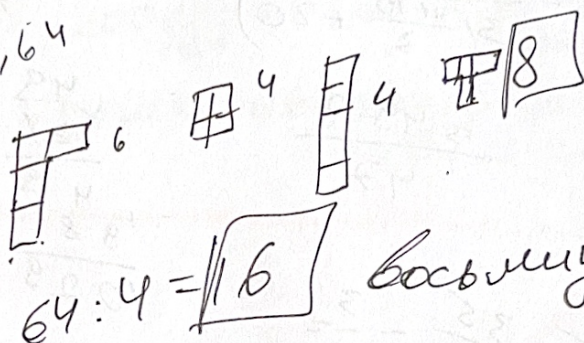 ,64
6 4 4 8
64:4=16 восьмиу